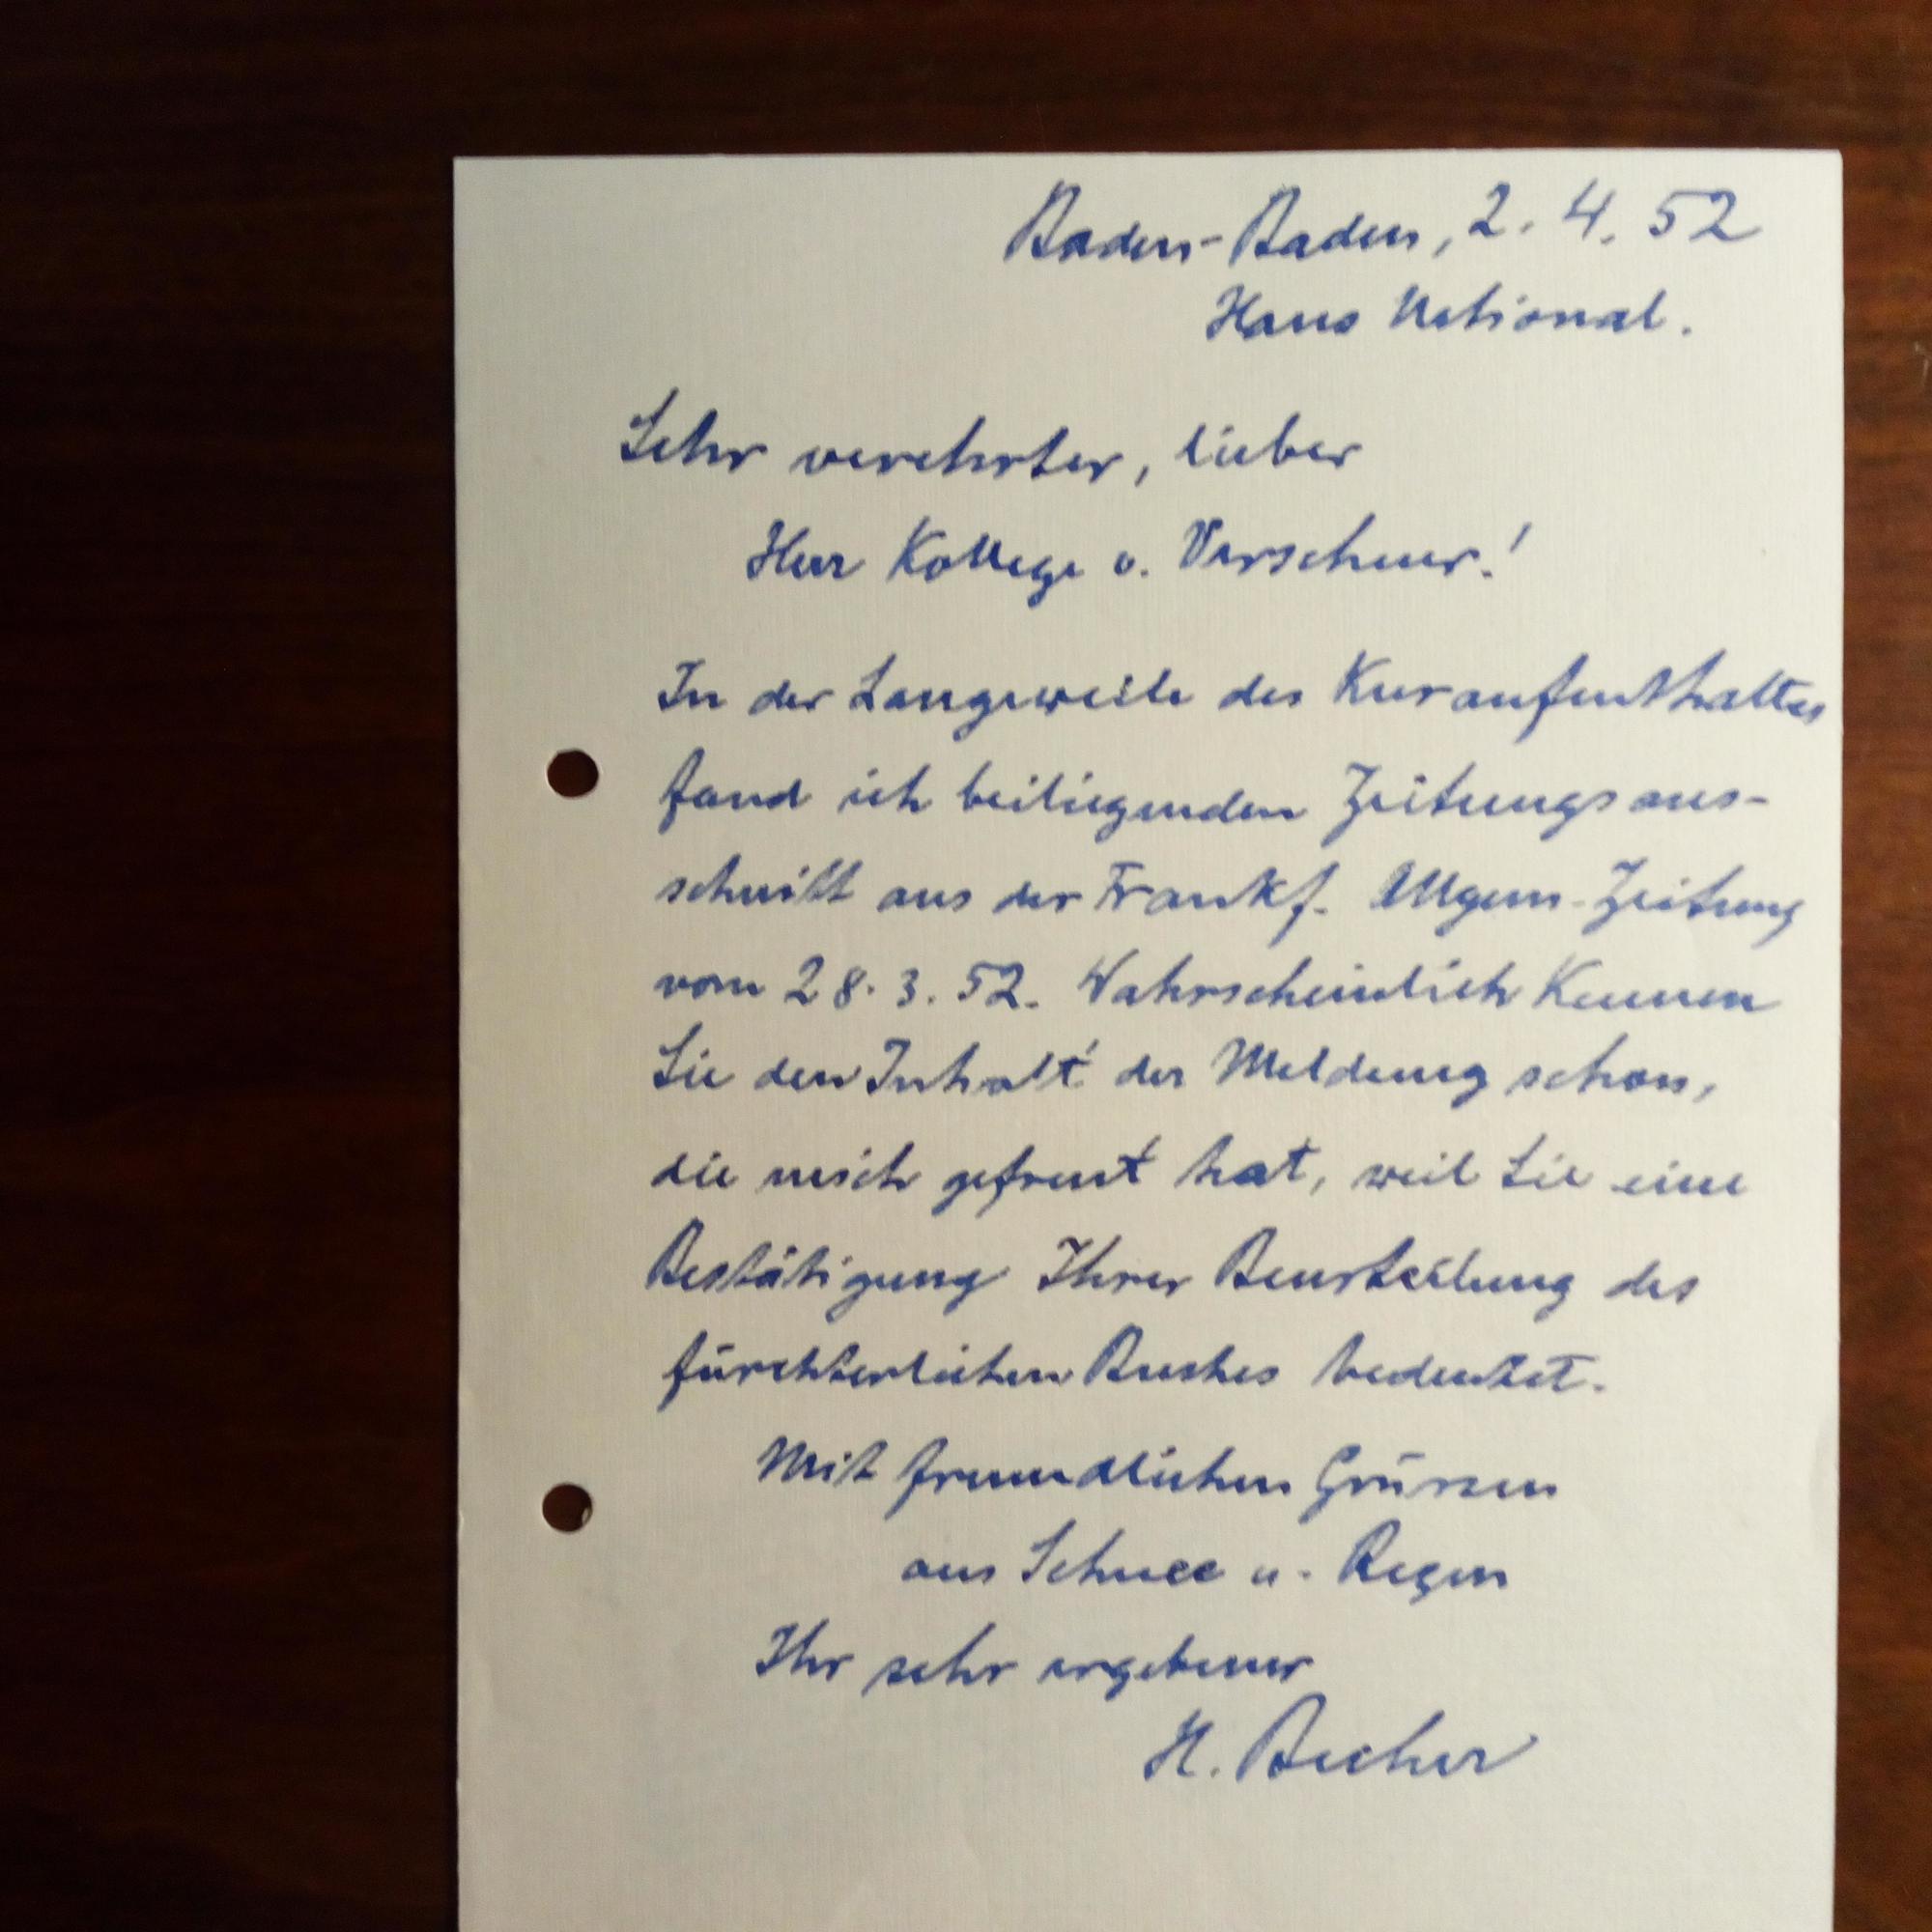 Baden-Baden, 2. 4. 52
Haus National.
Sehr verehrter, lieber
Herr Kollege v. Verschuer!
In der Langeweile des Kuraufenthaltes
fand ich beiliegenden Zeitungsaus-
schnitt aus der Frankf. Allgem. Zeitung
vom 28. 3. 52. Wahrscheinlich kennen
Sie den Inhalt der Meldung schon,
die mich gefreut hat, weil Sie eine
Bestätigung Ihrer Beurteilung des
fürchterlichen Buches bedeutet.
Mit freundlichen Grüssen
aus Schnee u. Regen
Ihr sehr ergebener
H. Becher